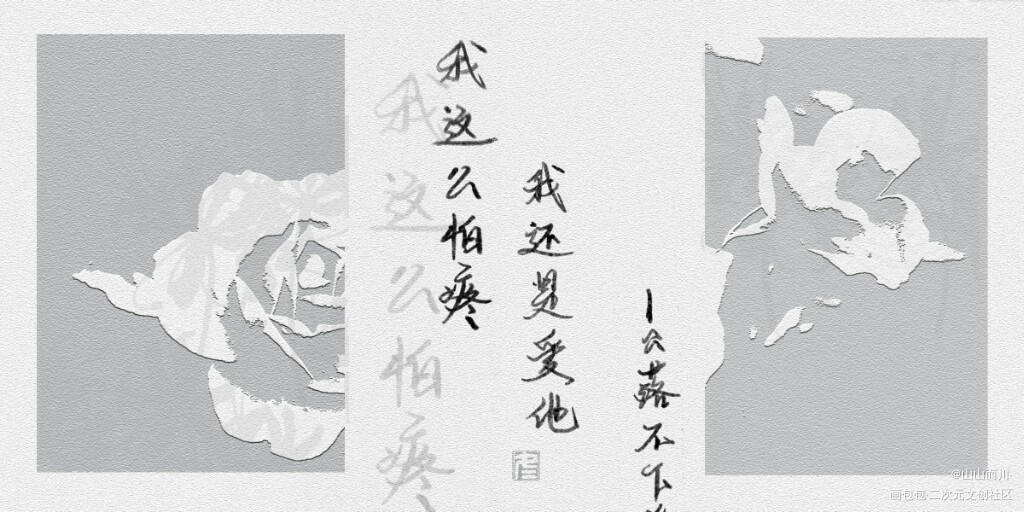 我这么怕疼
我这么怕疼
我还是爱他
—公落不下
@山山而川
画包包·二次元文创社区